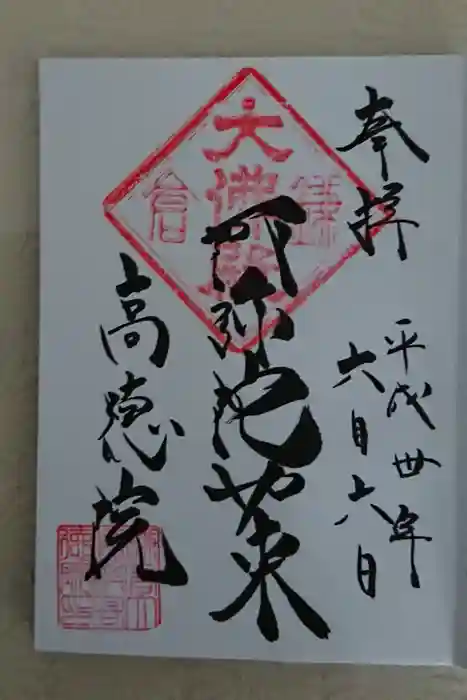 奉拝
平成卅年
六月六日
鎌倉
大佛殿
阿弥陀如来
高徳院